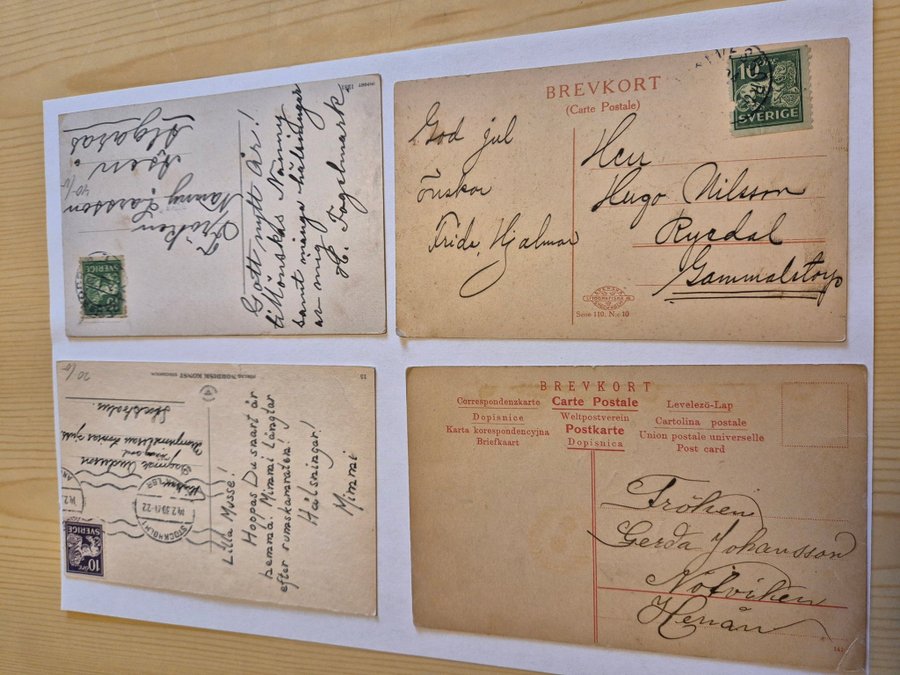 Gott nytt år!
tillönskas Nanny
samt många hälsningar
av mig H. Fagelmark
Fröken
Nanny Larsson
Åsen
Algarås
SVERIGE
BREVKORT
(Carte Postale)
God jul
önskar
Frida, Hjalmar
Herr
Hugo Nilsson
Rysdal
Gammalstorp
10
SVERIGE
Serie 110. N:o 10
FÖRLAG NORDISK KONST STOCKHOLM
Lilla Mosse!
Hoppas Du snart är
hemma. Mimmi längtar
efter rumskamraten!
Hälsningar!
Mimmi
Stockholm
STOCKHOLM
10
SVERIGE
BREVKORT
Correspondenzkarte Carte Postale Levelező-Lap
Dopisnice Weltpostverein Cartolina postale
Karta korespondencyjna Postkarte Union postale universelle
Briefkaart Dopisnica Post card
Fröken
Gerda Johansson
Nötviken
Henån